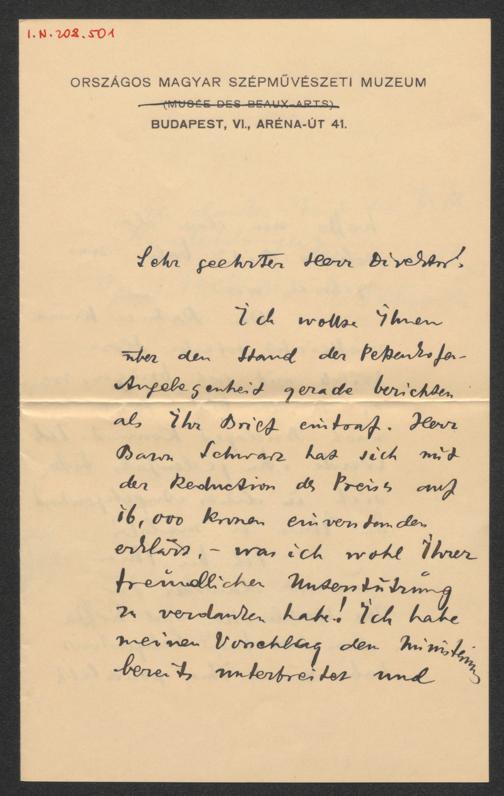 I.N. 208.501
ORSZÁGOS MAGYAR SZÉPMŰVÉSZETI MUZEUM
(MUSÉE DES BEAUX-ARTS)
BUDAPEST, VI., ARÉNA-ÚT 41.
Sehr geehrter Herr Direktor!
Ich wollte Ihnen
über den Stand der Pettenkofen-
Angelegenheit gerade berichten
als Ihr Brief eintraf. Herr
Baron Schwarz hat sich mit
der Reduction des Preises auf
16,000 Kronen einverstanden
erklärt, - was ich wohl Ihrer
freundlichen Unterstützung
zu verdanken habe! Ich habe
meinen Vorschlag dem Ministerium
bereits unterbreitet und